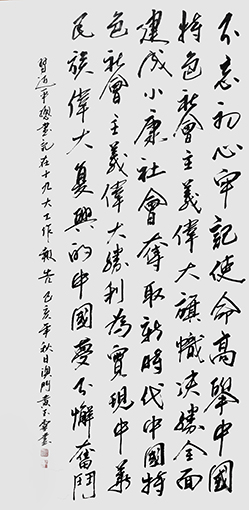 不忘初心牢記使命高舉中國
特色社會主義偉大旗幟決勝全面
建成小康社會奪取新時代中國特
色社會主義偉大勝利為實現中華
民族偉大复興的中國夢不懈奮鬥
習近平總書記在十九大工作報告 己亥年秋日澳門黃書